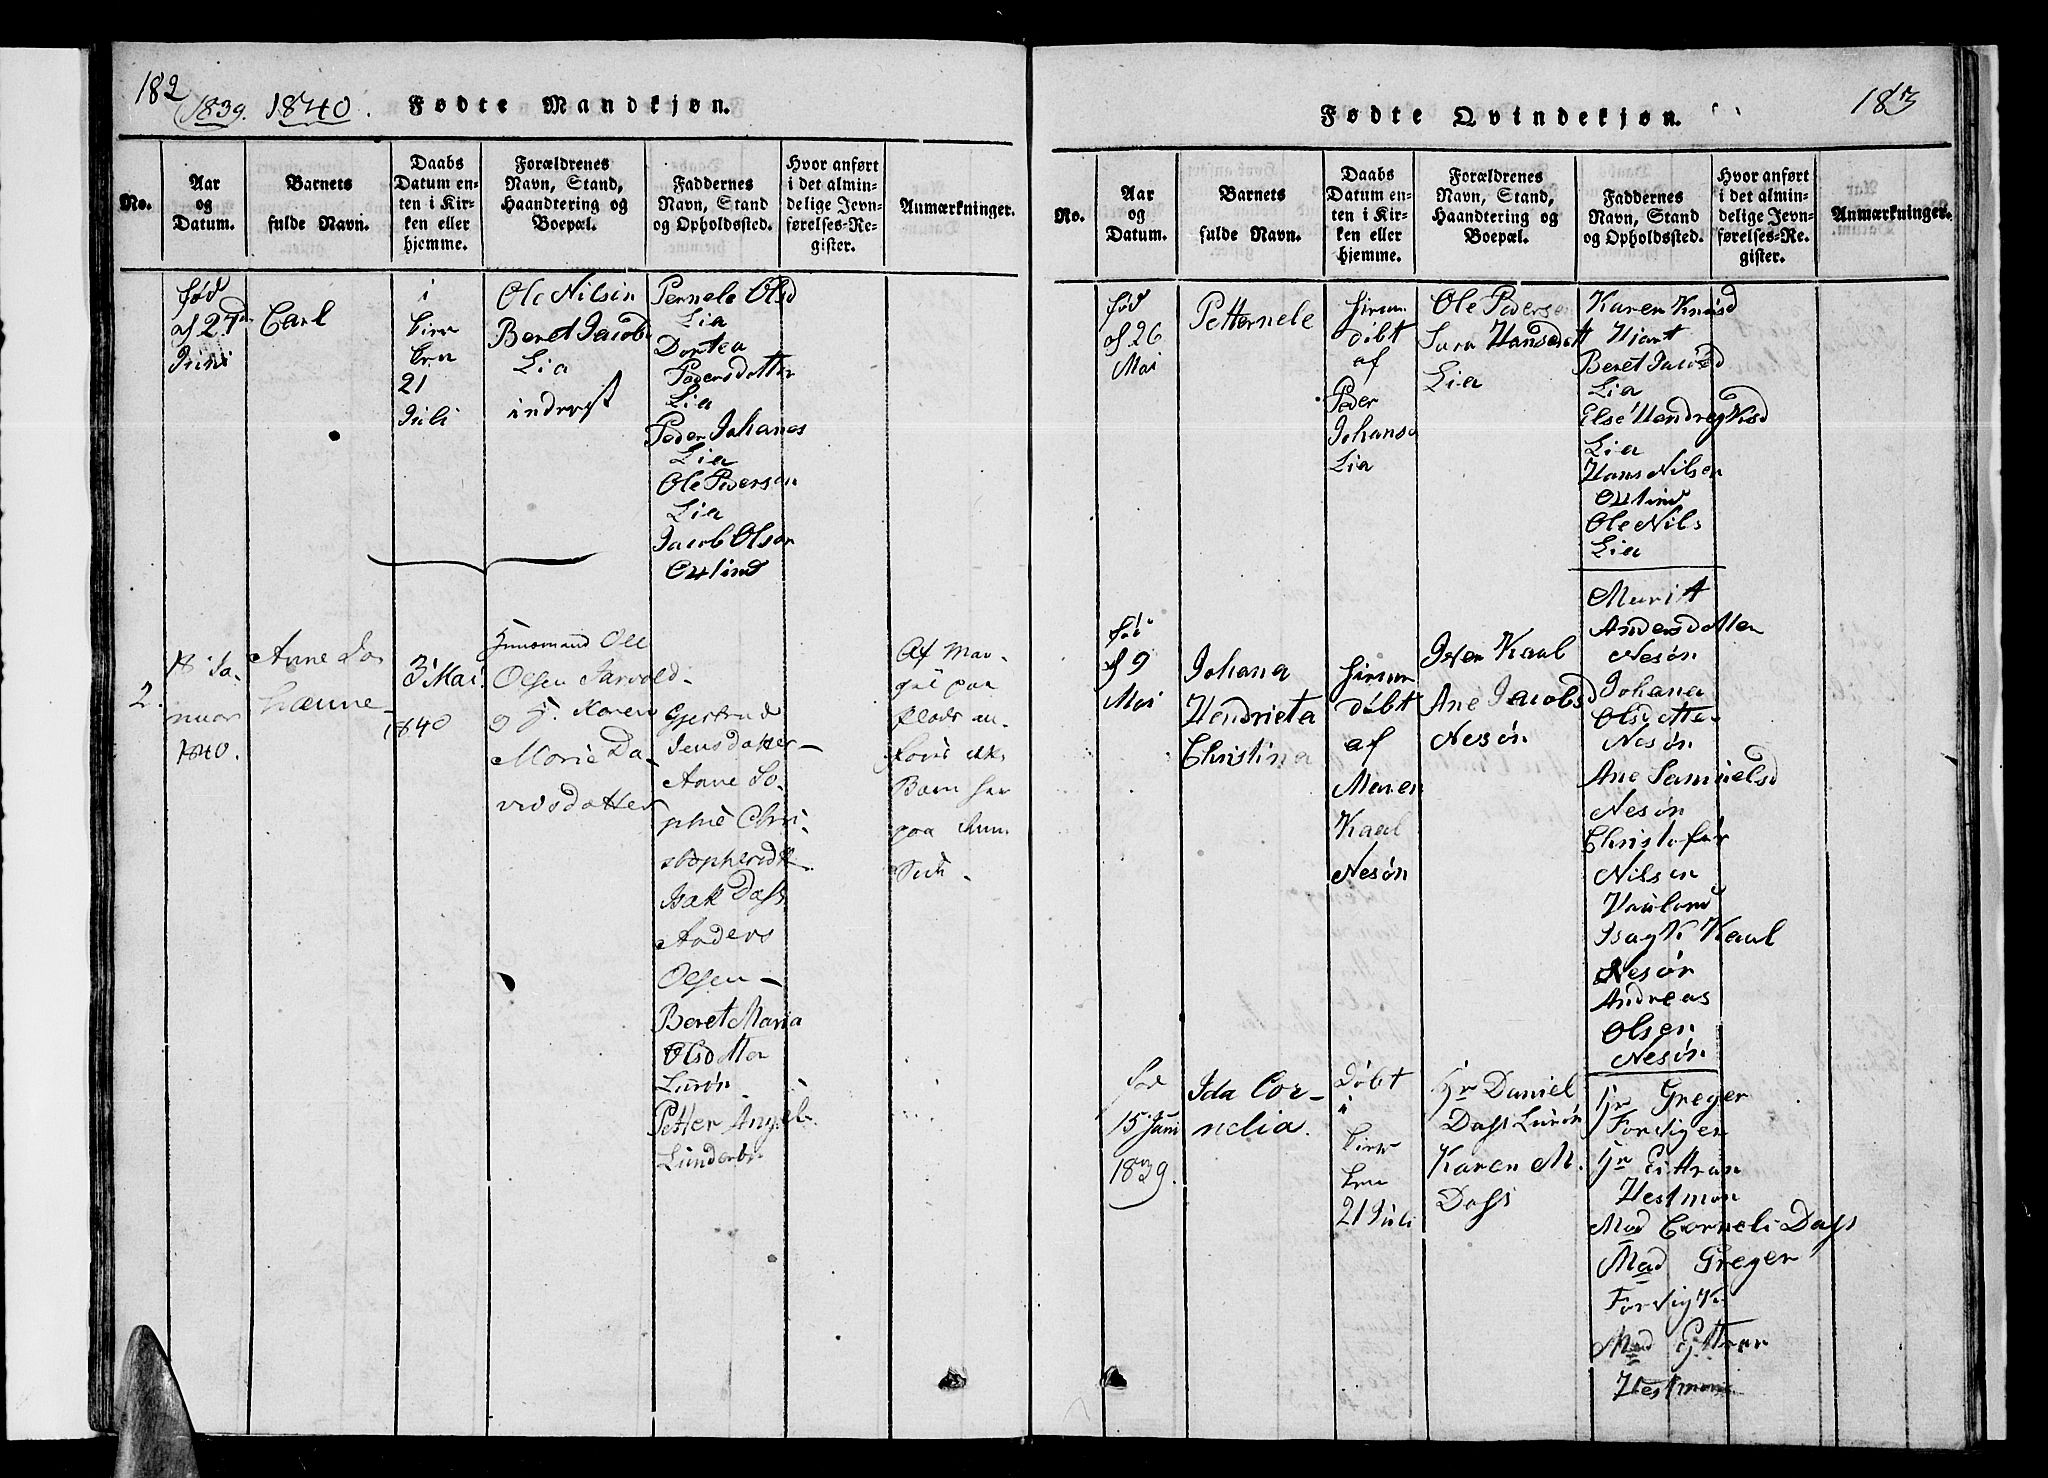 182
1839. 1840. Fødte Mandkjøn.
No.
Aar
og
Datum.
Barnets
fulde Navn.
Daabs
Datum en-
ten i Kir-
ken eller
hjemme.
Forældrenes
Navn, Stand,
Haandtering og
Boepæl.
Faddernes
Navn, Stand
og Opholdssted.
Hvor anført
i det almin-
delige Jevn-
førelses-Re-
gister.
Anmærkninger.
fød
d 27d
Juni
Carl
i
kirr
ken
21
Juli
Ole Nilsin
Beret Jacobs
Lia
inderst
Pernele Olsd
Lia
Dortea
Pedersdatter
Lia
Peder Johanes
Lia
Ole Pedersen
Lia
Jacob Olsen
2.
18 Ja-
nuar
1840.
Anne Jo-
hanne
3 Mai
1840
Huusmand Ole
Olsen
og H. Karen
Marie Da-
vidsdatter
Gjertrud
Jensdatter
Anne So-
phie Chri-
stophersdt
Isak Dass
Anders
Olsen
Beret Maria
Olsdatter
Lurøn
Petter Angel
Af Man-
gel paa
Plads an-
føres
Barn her
paa
Side.
183
Fødte Qvindekjøn.
No.
Aar
og
Datum.
Barnets
fulde Navn.
Daabs
Datum en-
ten i Kir-
ken eller
hjemme.
Forældrenes
Navn, Stand,
Haandtering og
Boepæl.
Faddernes
Navn, Stand
og Opholdssted.
Hvor anført
i det almin-
delige Jevn-
førelses-Re-
gister.
Anmærkninger.
fød
d 26
Mai
Petternele
hiem
døbt
af
Peder
Johanse
Lia
Ole Pederse
Sara Hansdatt
Lia
Karen Knusd
Hjart
Beret Jacobsd
Lia
Else Hendregksd
Lia
Hans Nilsen
Ole Nils
Lia
fød
d 9
Mai
Johana
Hendrieta
Christina
hiem
døbt
af
Maren
Kaal
Nesøn
Iver Kaal
Ane Jacobsd
Nesøn
Marit
Andersdatter
Nesøn
Johana
Olsdatter
Nesøn
Ane Samuelsd
Nesøn
Christofer
Nilsen
Isagk Kaal
Nesøn
Andreas
Olsen
Nesøn
fød
15 Juni
1839.
Ida Cor-
nelia.
Døbt
i
kirr
ken
21 Juli
Hr Daniel
Dass Lurøn
Karen M.
Dass
Hr Greger
Forviger
Hr
Hestmon
Mad Corneli Dass
Mad Greger
Mad
Hestmon